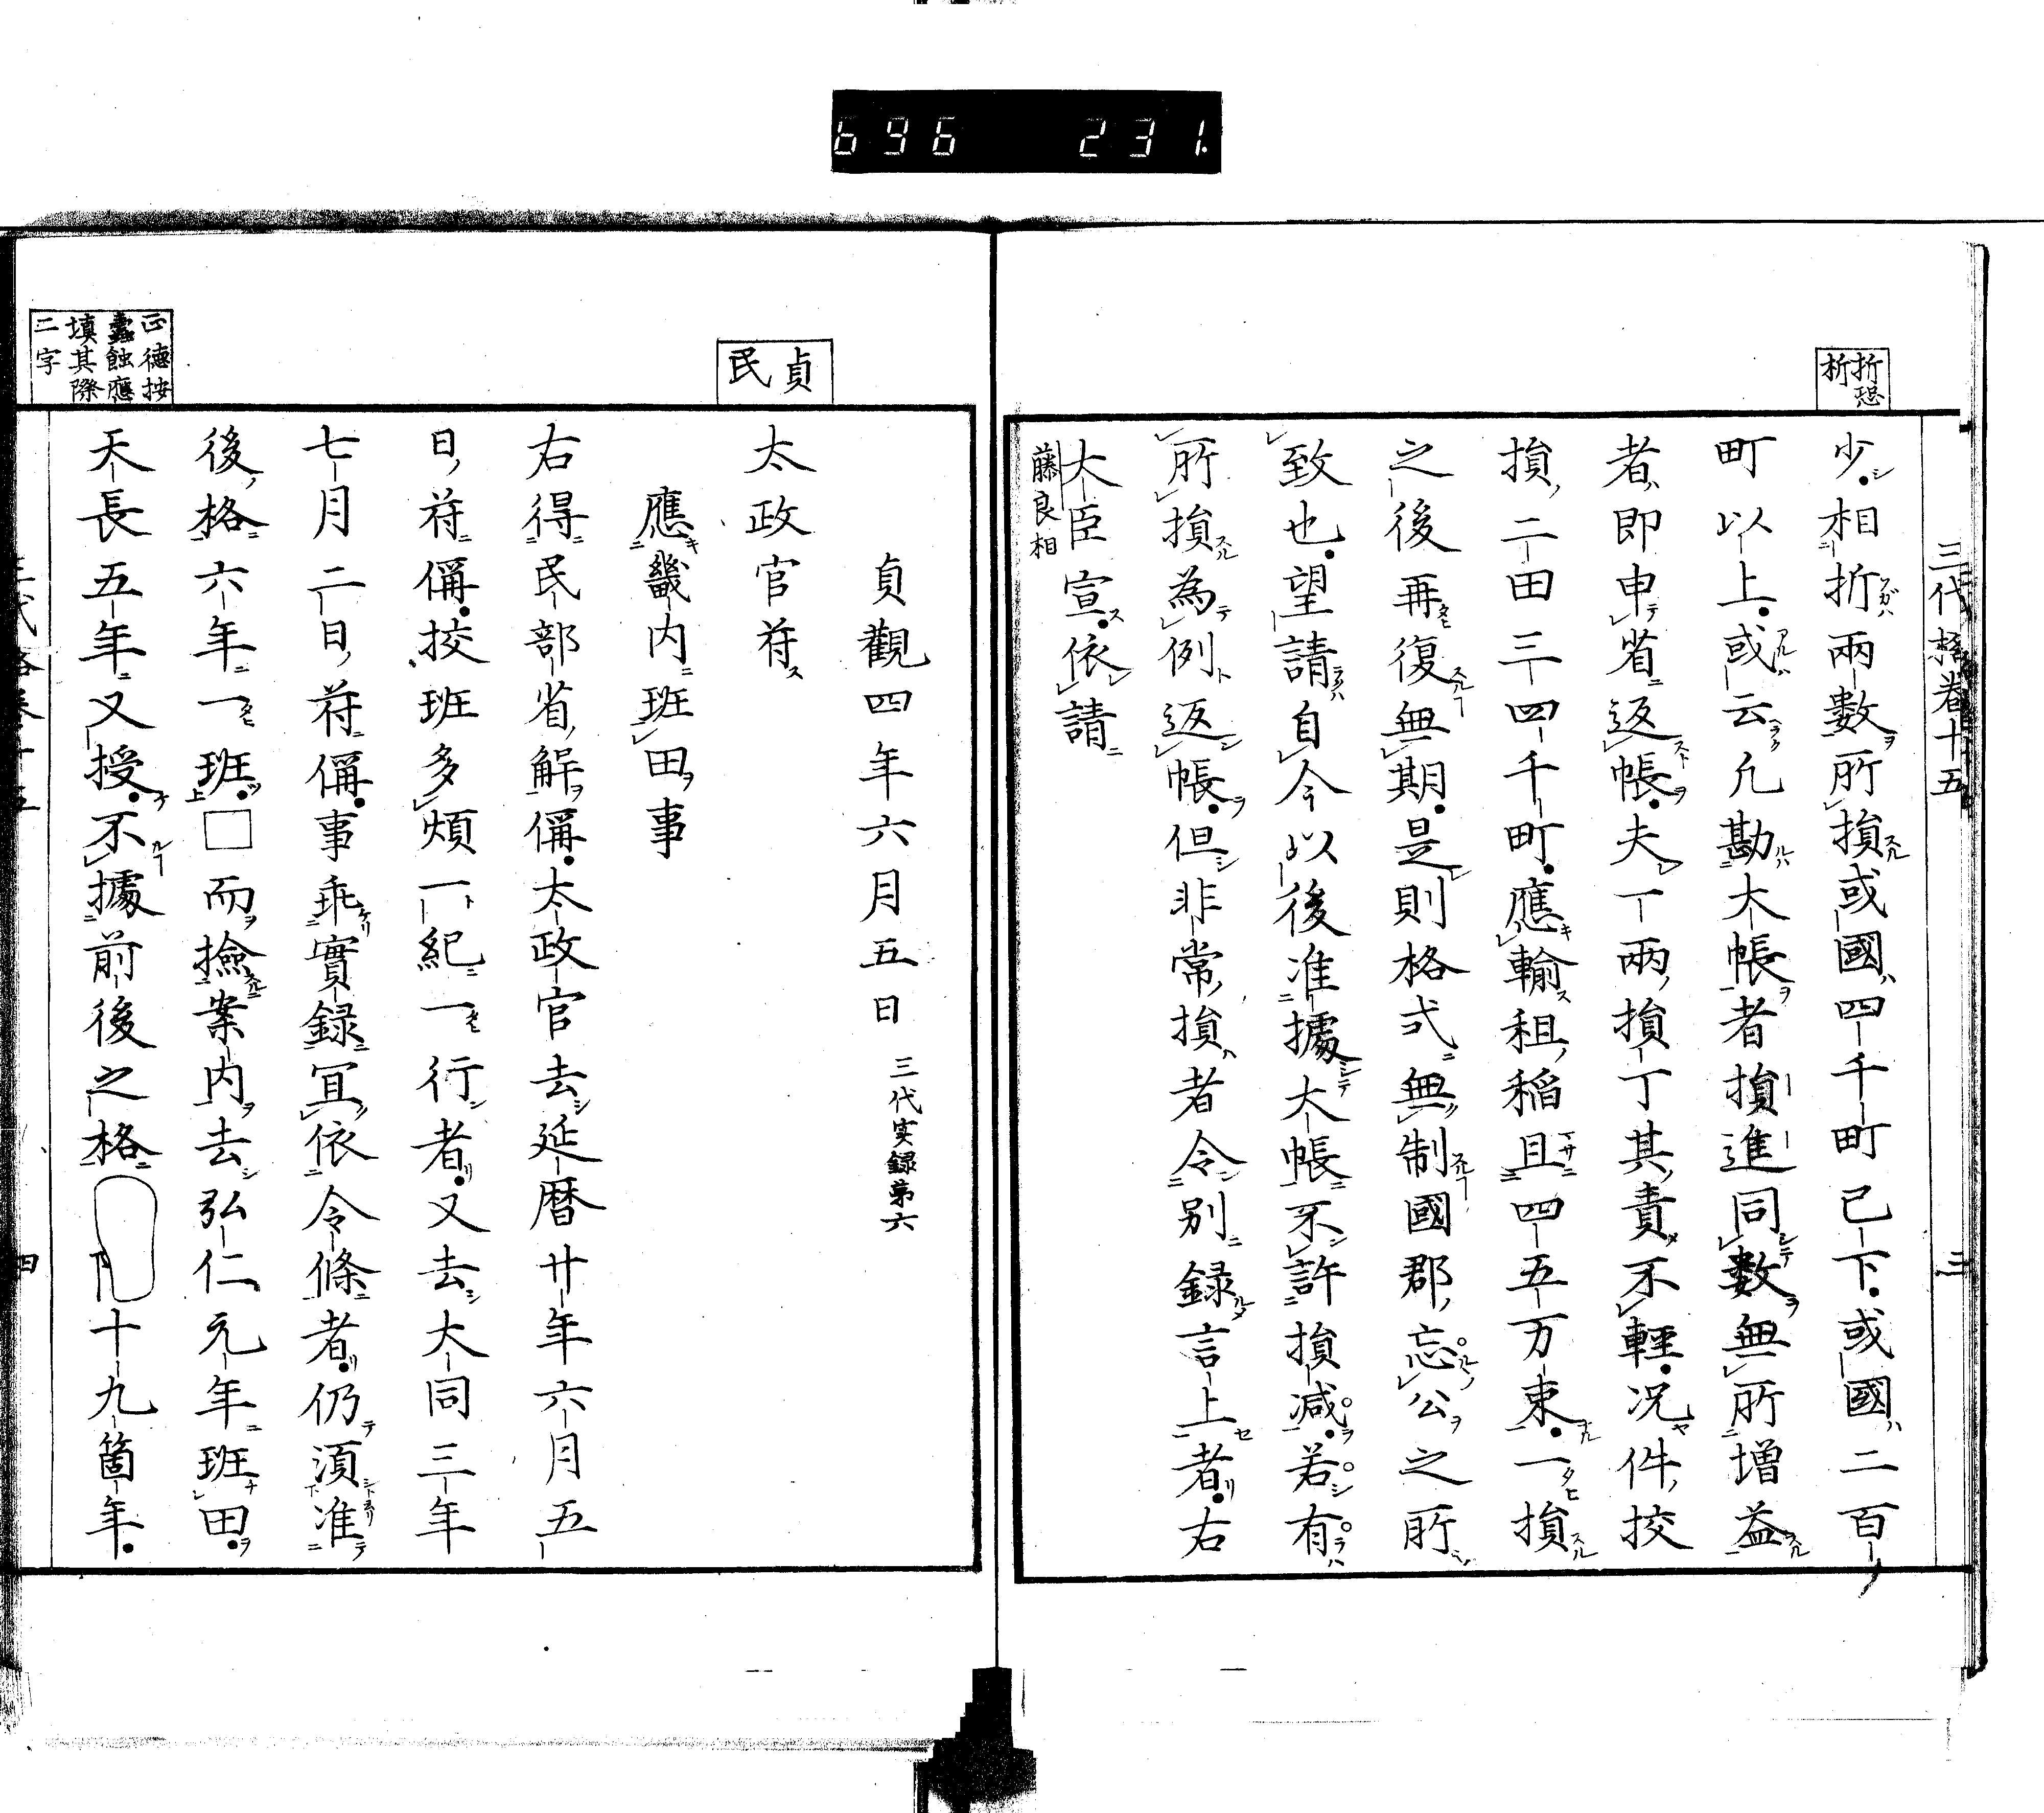 696 231.
三代格卷十五
三
折恐
析
少相折兩數所損或國四千町已下或國二百
町以上或云凢勘大帳者損進同數無所增益
者即申省返帳夫一兩損丁其責不輕况件挍
損二田三四千町應輸租稲且四五万束一損
之後再復無期是則格式無制國郡忘公之所
致也望請自今以後准據大帳不許損减若有
所損為例返帳但非常損者令別録言上者右
大臣宣依請
藤良相
貞觀四年六月五日 三代実録第六
貞
民
太政官符
應畿内班田事
右得民部省解偁太政官去延暦廿年六月五
日符偁挍班多煩一紀一行者又去大同三年
七月二日符偁事乖實録冝依令條者仍湏准
後格六年一班□而撿案内去弘仁元年班田
天長五年又授不據前後之格 十九箇年
正德按
蠹蝕應
填其際
二字
四